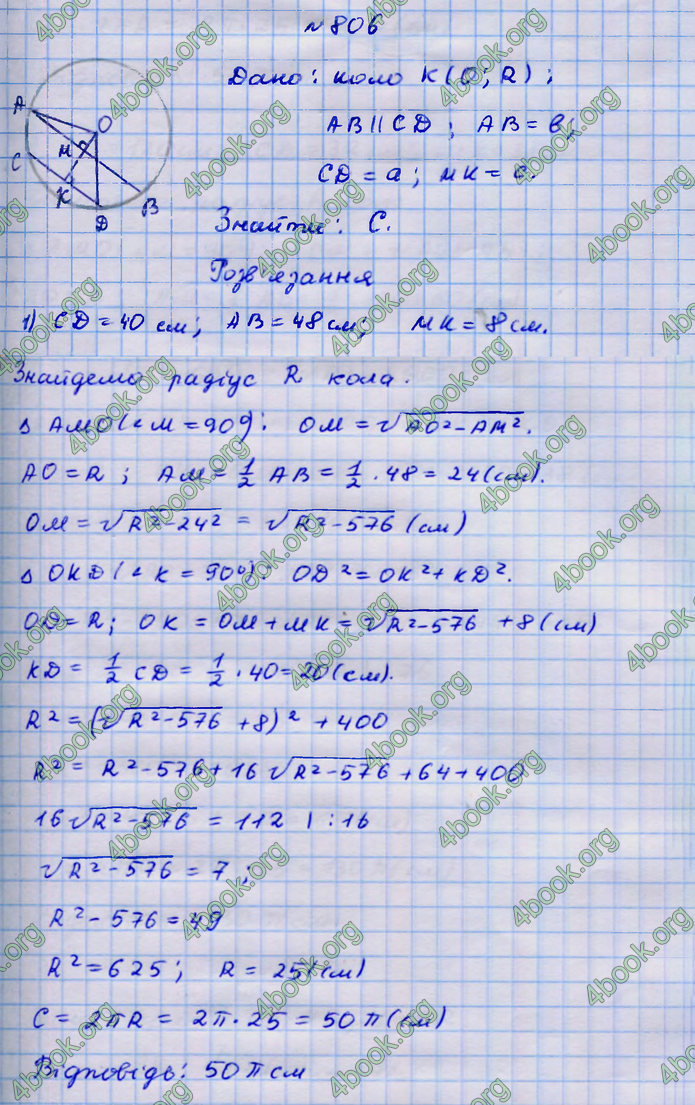 № 806
Дано: коло K(O; R);
AB || CD; AB = b;
CD = a; MK = c.
Знайти: C.
Розв'язання
1) CD = 40 см; AB = 48 см; MK = 8 см.
Знайдемо радіус R кола.
Δ AMO (∠M = 90°): OM = √(AO² - AM²).
AO = R; AM = 1/2 AB = 1/2 · 48 = 24 (см).
OM = √(R² - 24²) = √(R² - 576) (см)
Δ OKD (∠K = 90°): OD² = OK² + KD².
OD = R; OK = OM + MK = √(R² - 576) + 8 (см)
KD = 1/2 CD = 1/2 · 40 = 20 (см).
R² = (√(R² - 576) + 8)² + 400
R² = R² - 576 + 16√(R² - 576) + 64 + 400
16√(R² - 576) = 112 | : 16
√(R² - 576) = 7;
R² - 576 = 49
R² = 625; R = 25 (см)
C = 2πR = 2π · 25 = 50π (см)
Відповідь: 50π см
A
O
M
C
K
B
D
4book.org